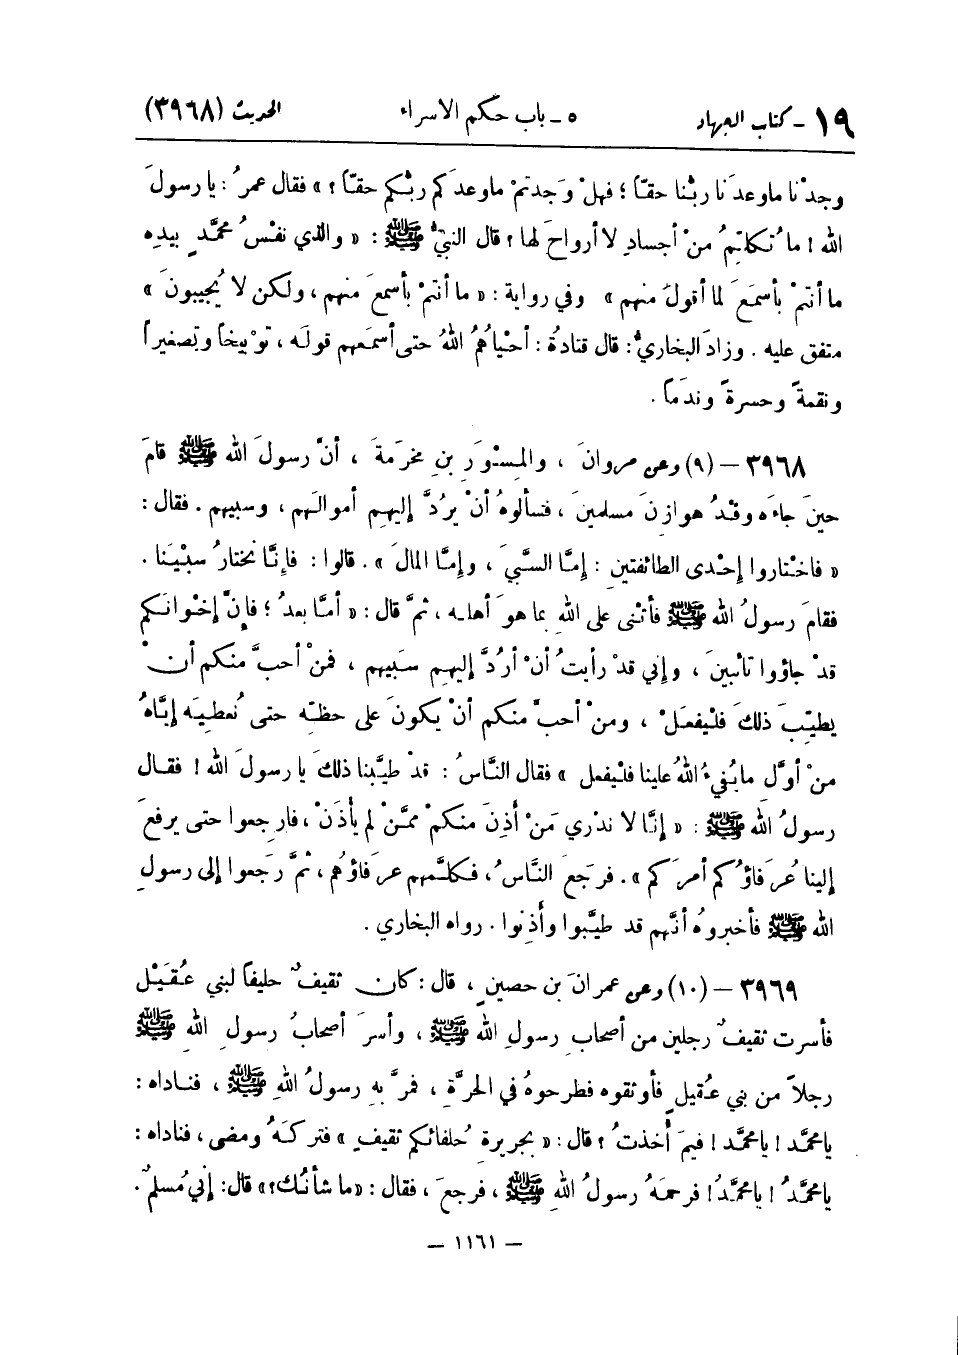 ١٩ - كتاب الجهاد ٥ - باب حكم الاسراء الحديث (٣٩٦٨)
وجدْنا ما وعدَنا ربُّنا حقّاً ؛ فهلْ وَجدتمْ ما وعدَكم ربُّكم حقّاً ؟ » فقال عمرُ : يا رسولَ
الله ! ما تُكلِّمُ منْ أجسادٍ لا أرواحَ لها ؟ قال النبيُّ ﷺ : « والذي نفْسُ محمَّدٍ بيدِه
ما أنتمْ بأسمَعَ لما أقولُ منهم » وفي رواية : « ما أنتمْ بأسمعَ منهم ، ولكن لا يُجيبونَ »
متفق عليه . وزادَ البخاريُّ : قال قتادةُ : أحْياهُمُ اللهُ حتى أسمَعهم قولَه ، توْبيخاً وتصغيراً
ونقمةً وحسرةً وندَماً .
٣٩٦٨ – (٩) وعن مروانَ ، والمِسْوَرِ بنِ مخرَمةَ ، أنَّ رسولَ الله ﷺ قامَ
حينَ جاءَه وفْدُ هوازنَ مسلمينَ ، فسألوهُ أنْ يرُدَّ إليهِم أموالَهم ، وسبيهم . فقال :
« فاخْتاروا إِحْدى الطائفتينِ : إِمَّا السَّبيَ ، وإِمَّا المالَ » . قالوا : فإِنَّا نختارُ سبْيَنا .
فقامَ رسولُ الله ﷺ فأثْنى على اللهِ بما هوَ أهلُه ، ثمَّ قال : « أمَّا بعدُ ؛ فإِنَّ إِخْوانَكم
قدْ جاؤوا تائبينَ ، وإِني قدْ رأيتُ أنْ أرُدَّ إليهِم سَبيهم ، فمنْ أحبَّ منكم أنْ
يطيِّبَ ذلكَ فلْيفعلْ ، ومنْ أحبَّ منكم أنْ يكونَ على حظِّه حتى نُعطِيَه إِيَّاهُ
منْ أوَّلِ ما يُفيءُ اللهُ علينا فلْيفعل » فقال النَّاسُ : قدْ طيَّبنا ذلكَ يا رسولَ الله ! فقال
رسولُ الله ﷺ : « إِنَّا لا ندْري مَنْ أذِنَ منكمْ ممَّنْ لم يأذَنْ ، فارجعوا حتى يرفعَ
إلينا عُرَفاؤُكم أمرَكم » . فرجَعَ النَّاسُ ، فكلَّمهم عرفاؤُهم ، ثمَّ رَجعوا إلى رسولِ
الله ﷺ فأخبروهُ أنَّهم قد طيَّبوا وأَذِنوا . رواه البخاري .
٣٩٦٩ – (١٠) وعن عمرانَ بن حصينٍ ، قال : كان ثقيفٌ حليفاً لبني عُقَيْل
فأسرت ثقيفٌ رجلين من أصحابِ رسولِ الله ﷺ ، وأسرَ أصحابُ رسولِ اللهِ ﷺ
رجلاً من بني عُقيلٍ فأوثقوه فطرحوهُ في الحرَّةِ ، فمرَّ بهِ رسولُ اللهِ ﷺ ، فناداه :
يا محمَّد ! يا محمَّد ! فيمَ أُخذتُ ؟ قال : « بجريرةِ حُلفائكم ثقيفٍ » فتركَهُ ومضى ، فناداه :
يا محمَّدُ ! يا محمَّدُ ! فرحمَهُ رسولُ اللهِ ﷺ ، فرجعَ ، فقال : « ما شأنُك ؟ » قال : إِني مُسلمٌ .
– ١١٦١ –